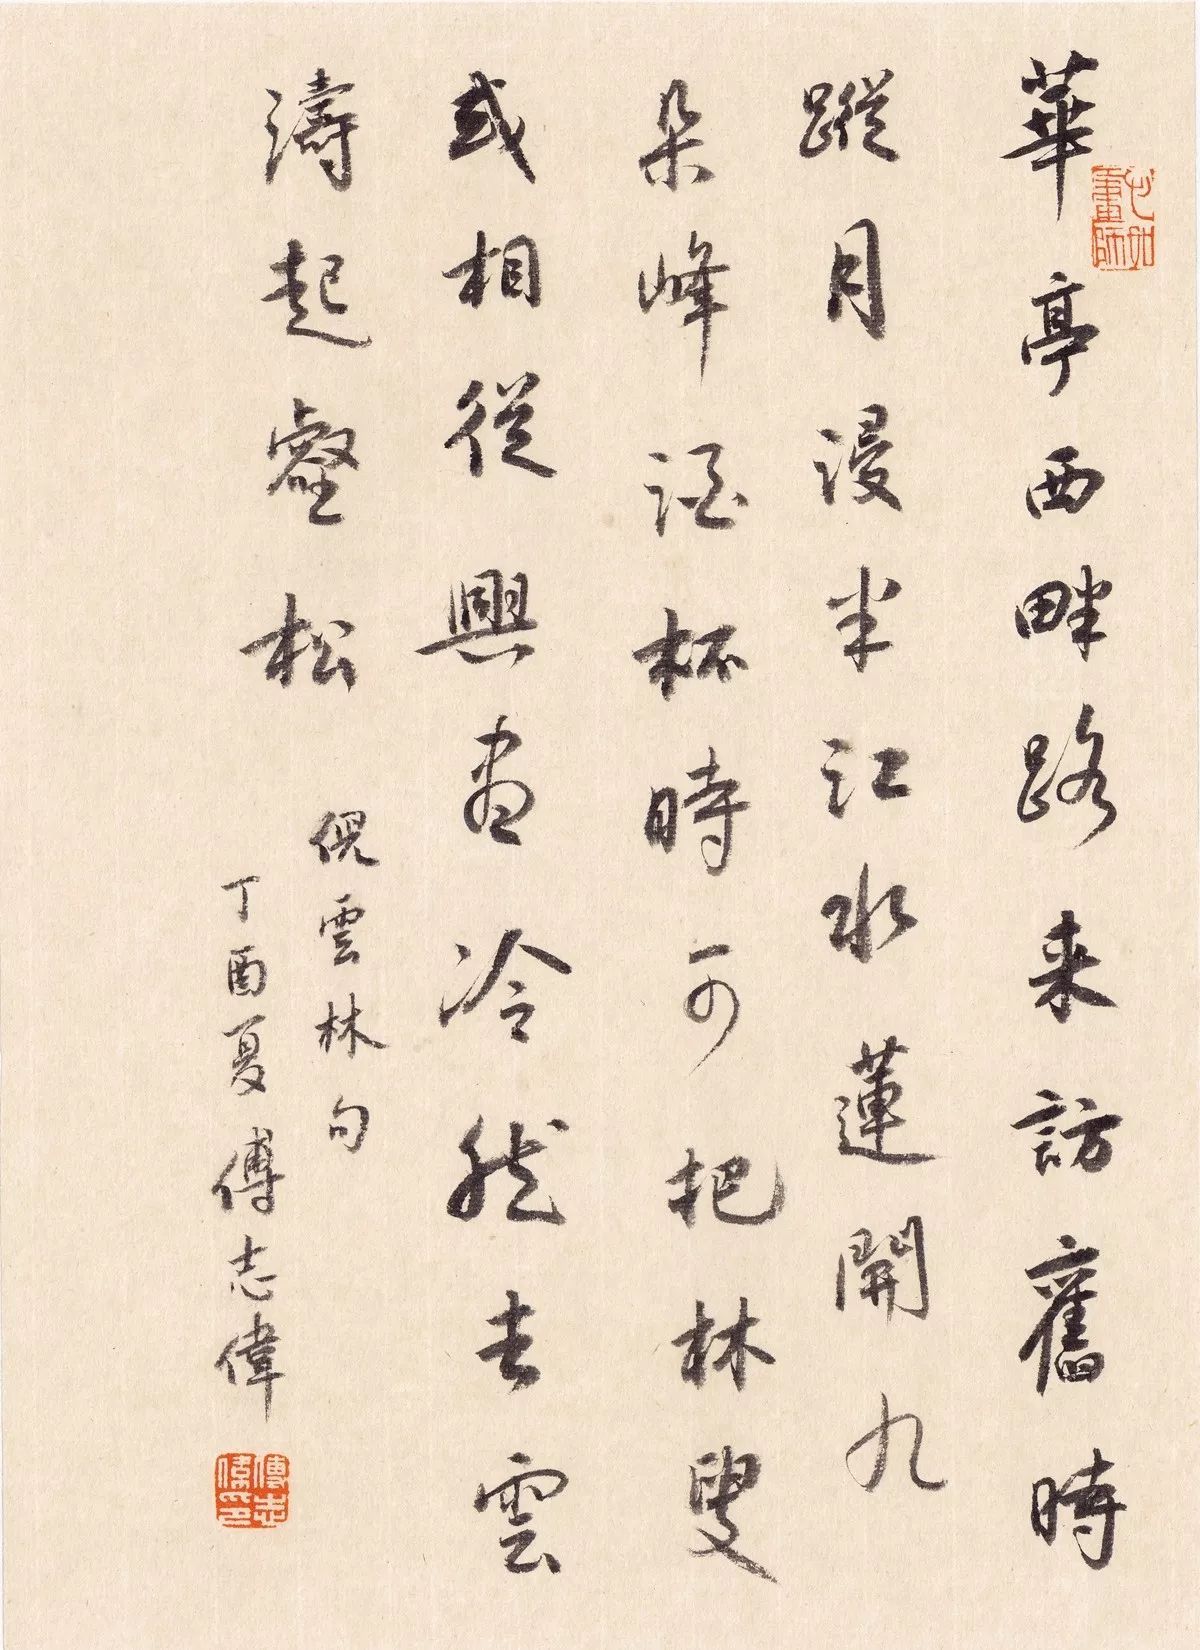 華亭西畔路来訪舊時
蹤月浸半江水蓮開九
朵峰酒杯時可把林叟
或相從興盡冷然去雲
濤起壑松
倪雲林句
丁酉夏傅志偉
心如畫師
傅志偉印